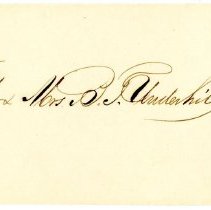 & Mrs B. T. Underhill